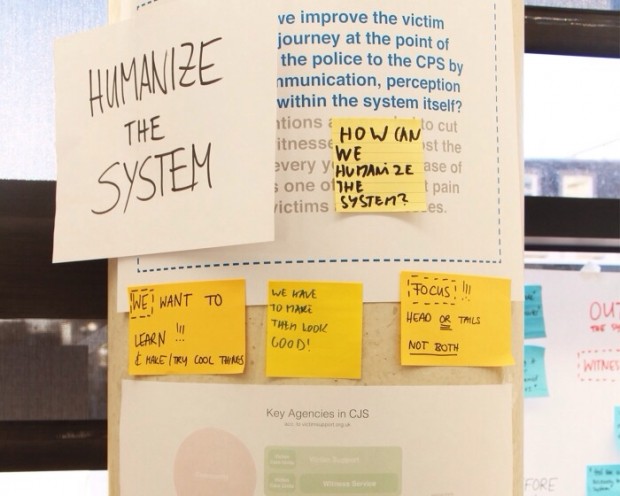 HUMANIZE
THE
SYSTEM
we improve the victim
journey at the point of
the police to the CPS by
communication, perception
within the system itself?
to cut
every
one of
pain
victims
HOW CAN
WE
HUMANIZE
THE
SYSTEM?
WE WANT TO
LEARN !!!
& MAKE/TRY COOL THINGS
WE HAVE
TO MAKE
THEM LOOK
GOOD!
FOCUS !!!
HEAD OR TAILS
NOT BOTH
Key Agencies in CJS
Victim Support
Witness Service
OUT
WITNE
FORE